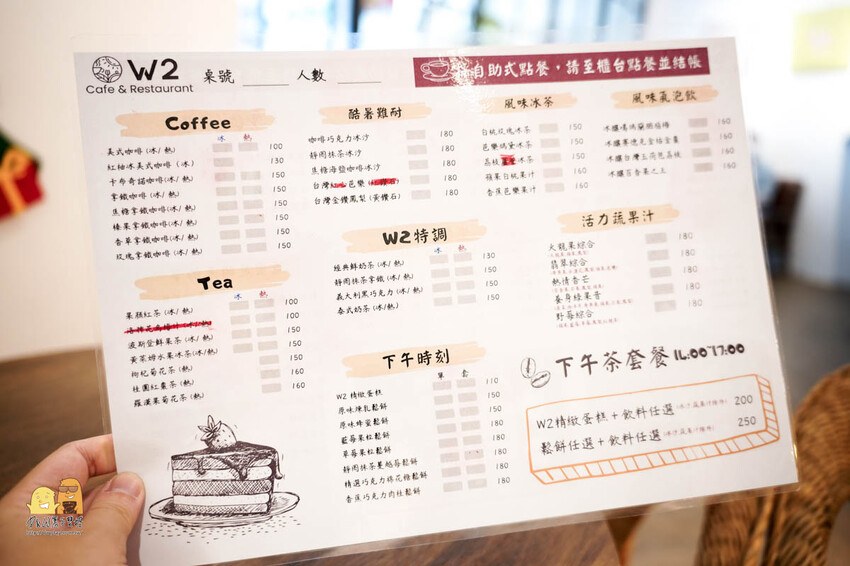 W2
Cafe & Restaurant
桌號
人數
自助式點餐，請至櫃台點餐並結帳
Coffee
冰 熱
美式咖啡(冰/熱) 100
紅柚冰美式咖啡(冰) 130
卡布奇諾咖啡(冰/熱) 150
拿鐵咖啡(冰/熱) 150
焦糖拿鐵咖啡(冰/熱) 150
榛果拿鐵咖啡(冰/熱) 150
香草拿鐵咖啡(冰/熱) 150
玫瑰拿鐵咖啡(冰/熱) 150
Tea
冰 熱
果核紅茶(冰/熱) 100
100
波斯登鮮果茶(冰/熱) 150
黃茶姆水果冰茶(冰/熱) 150
枸杞菊花茶(熱) 160
桂圓紅棗茶(熱) 160
羅漢果菊花茶(熱) 160
酷暑難耐
咖啡巧克力冰沙 180
靜岡抹茶冰沙 180
焦糖海鹽咖啡冰沙 180
台灣 芭樂 180
台灣金鑽鳳梨(黃鑽石) 180
W2特調
冰 熱
經典鮮奶茶(冰/熱) 130
靜岡抹茶拿鐵(冰/熱) 150
義大利黑巧克力(冰/熱) 150
泰式奶茶(冰/熱) 150
下午時刻
單 套
W2 精緻蛋糕 110
原味煉乳鬆餅 150
原味蜂蜜鬆餅 150
藍莓果粒鬆餅 180
草莓果粒鬆餅 180
靜岡抹茶蔓越莓鬆餅 180
精選巧克力棉花糖鬆餅 180
香蕉巧克力肉桂鬆餅 180
風味冰茶
白桃玫瑰冰茶 150
芭樂鴿黛冰茶 150
荔枝 冰茶 150
蘋果白桃果汁 160
香蕉芭樂果汁 160
風味氣泡飲
160
160
冰釀台灣玉荷包荔枝 160
冰釀百香果之王 160
活力蔬果汁
火龍果綜合 180
翡翠綜合 180
熱情香芒 180
養身綠果昔 180
野莓綜合 180
下午茶套餐 14:00~17:00
W2精緻蛋糕+飲料任選 200
鬆餅任選+飲料任選 250